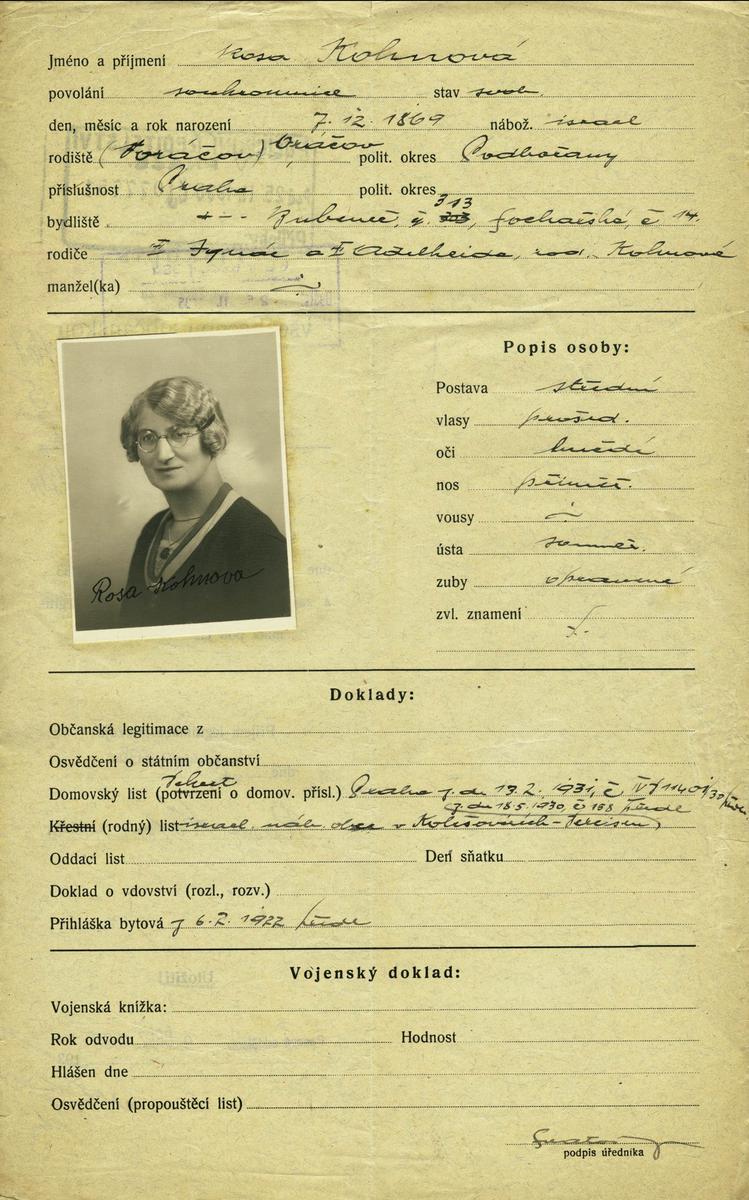 Jméno a příjmení Rosa Kohnová
povolání soukromnice stav svob.
den, měsíc a rok narození 7. 12. 1869 nábož. israel
rodiště (Voráčov) Oráčov polit. okres Podbořany
příslušnost Praha polit. okres
bydliště Bubeneč, č. 313, č 14.
rodiče † Ignác a † Adelheida, roz. Kohnové
manžel(ka)
Popis osoby:
Postava střední
vlasy prošed.
oči hnědé
nos přiměř.
vousy
ústa souměr.
zuby opravené
zvl. znamení
Rosa Kohnova
Doklady:
Občanská legitimace z
Osvědčení o státním občanství
Domovský list (potvrzení o domov. přísl.) Praha z de 13. 2. 1931, č
z de 18.5.1930, č 158
Křestní (rodný) list israel. náb. obce v
Oddací list Den sňatku
Doklad o vdovství (rozl., rozv.)
Přihláška bytová z 6. 2. 1922
Vojenský doklad:
Vojenská knížka:
Rok odvodu Hodnost
Hlášen dne
Osvědčení (propouštěcí list)
podpis úředníka